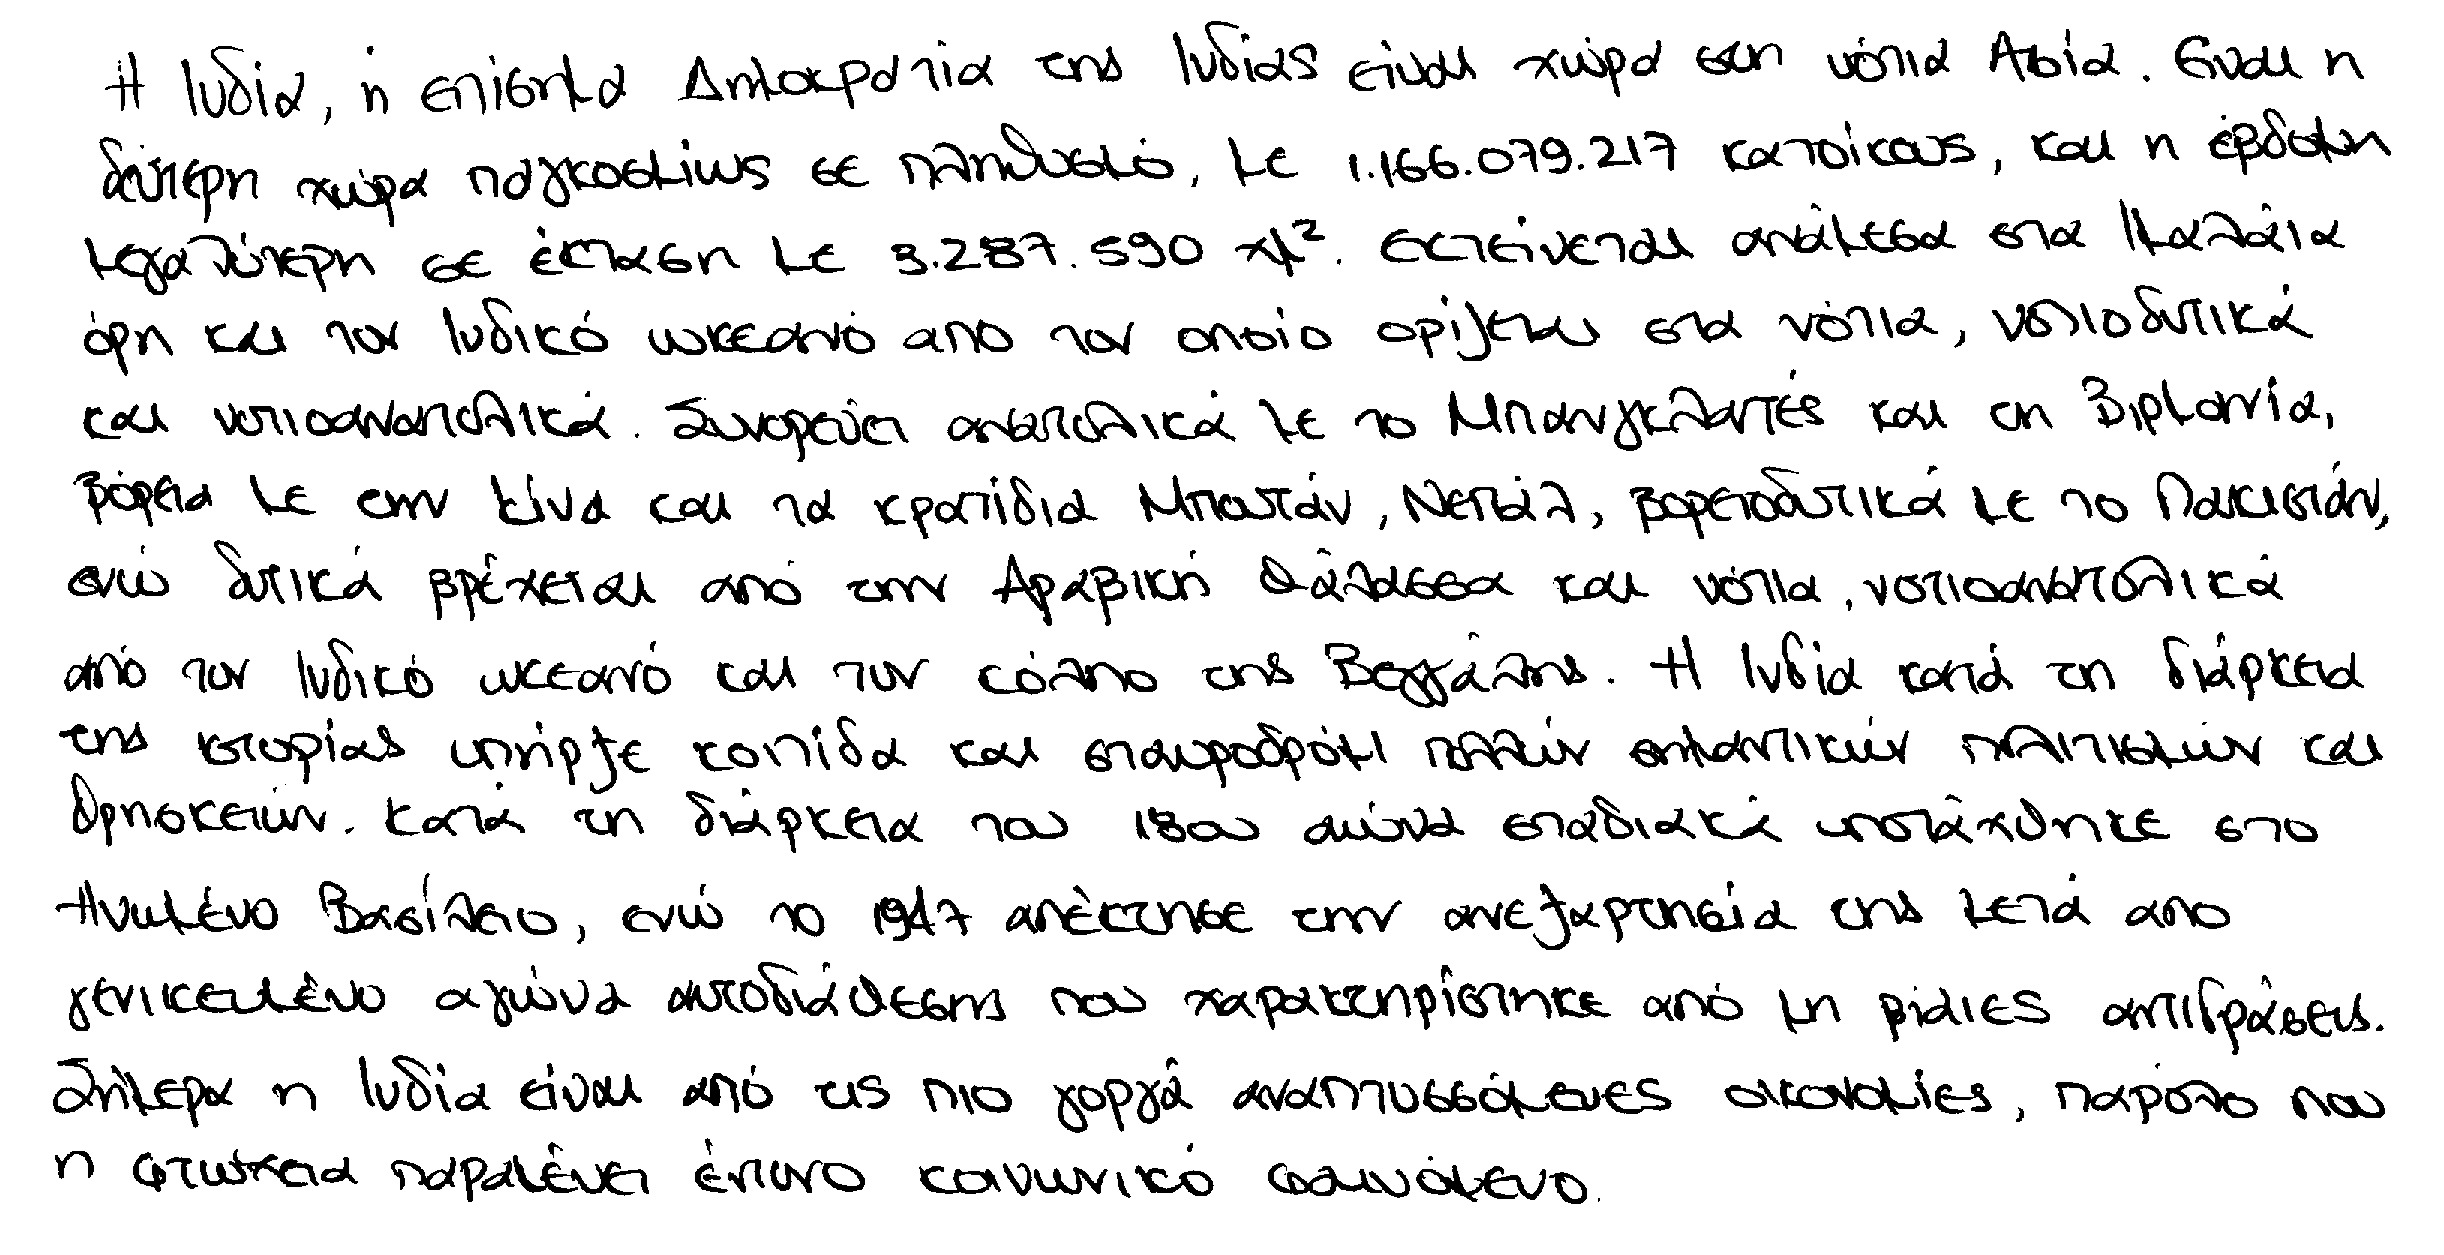 Η Ινδία, ή επίσημα Δημοκρατία της Ινδίας είναι χώρα στη νότια Ασία. Είναι η
δεύτερη χώρα παγκοσμίως σε πληθυσμό, με 1.166.079.217 κατοίκους, και η έβδομη
μεγαλύτερη σε έκταση με 3.287.590 χμ². Εκτείνεται ανάμεσα στα Ιμαλάια
όρη και τον Ινδικό ωκεανό απο τον οποίο ορίζεται στα νότια, νοτιοδυτικά
και νοτιοανατολικά. Συνορεύει ανατολικά με το Μπανγκλαντές και τη Βιρμανία,
βόρεια με την Κίνα και τα κρατίδια Μπουτάν, Νεπάλ, βορειοδυτικά με το Πακιστάν,
ενώ δυτικά βρέχεται από την Αραβική θάλασσα και νότια, νοτιοανατολικά
από τον Ινδικό ωκεανό και τον κόλπο της Βεγγάλης. Η Ινδία κατά τη διάρκεια
της ιστορίας υπήρξε κοιτίδα και σταυροδρόμι πολλών σημαντικών πολιτισμών και
θρησκειών. Κατά τη διάρκεια του 18ου αιώνα σταδιακά υποτάχθηκε στο
Ηνωμένο Βασίλειο, ενώ το 1947 απέκτησε την ανεξαρτησία της μετά απο
γενικευμένο αγώνα αυτοδιάθεσης που χαρακτηρίστηκε από μη βίαιες αντιδράσεις.
Σήμερα η Ινδία είναι από τις πιο γοργά αναπτυσσόμενες οικονομίες, παρόλο που
η φτώχεια παραμένει έντονο κοινωνικό φαινόμενο.